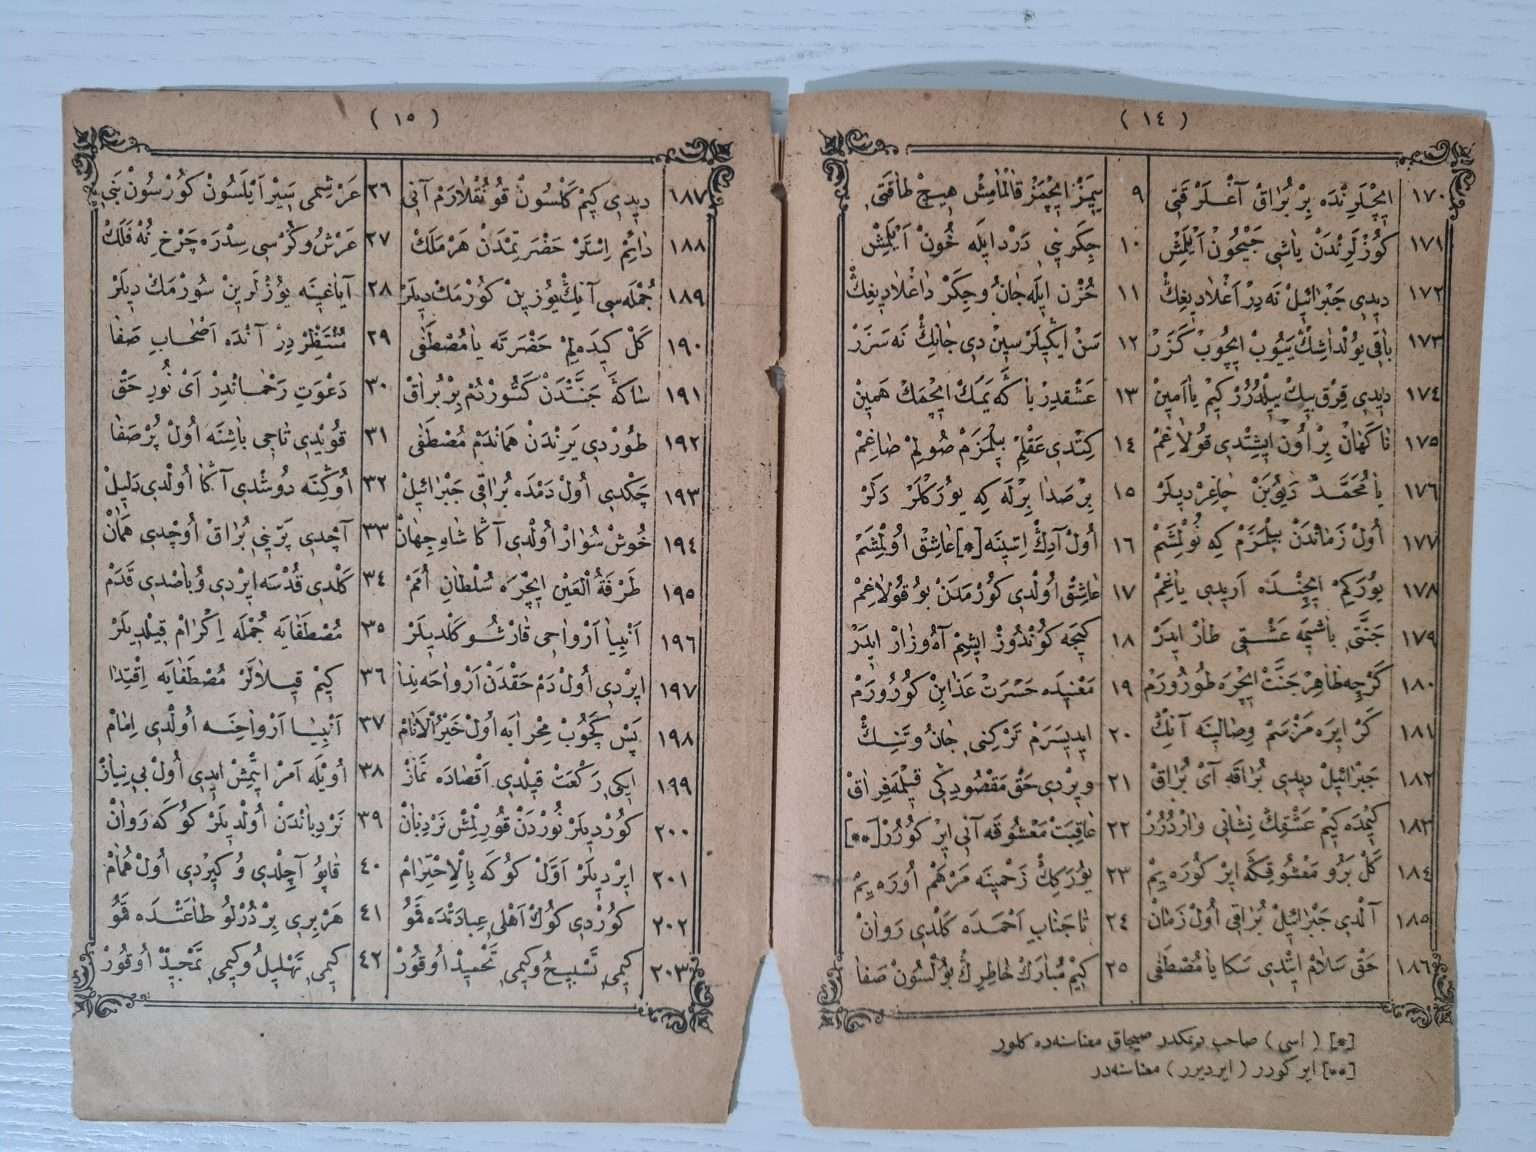 ( ١٤ )
١٧٠ ایچلرنده بر براق آغلر قتی ٩ ییمز ایچمز قالمامش هیچ طاقتی
١٧١ کوزلرندن یاشی جیحون ایلمش ١٠ جکرنی درد ایله خون ایلمش
١٧٢ دیدی جبرائیل نه در آغلادیغك ١١ حزن ایله جان و جکر داغلادیغك
١٧٣ باقی یولداشك ییوب ایچوب کزر ١٢ سن ایکیلرسین دی جانك نه سزر
١٧٤ دیدی قرق بیك ییلدرر کیم یا امین ١٣ عشقدر باکه یمك ایچمك همین
١٧٥ ناکهان بر اون ایشتدی قولاغم ١٤ کتدی عقلم بیلمزم صولم صاغم
١٧٦ یا محمد دیوبن چاغردیلر ١٥ بر صدا برله که یورکلر دلر
١٧٧ اول زماندن بیلمزم که نولمشم ١٦ اول آدك اسینه [*] عاشق اولمشم
١٧٨ یورکم ایچنده اریدی یاغم ١٧ عاشق اولدی کوزمدن بو قولاغم
١٧٩ جنتی باشیمه عشقی طار ایدر ١٨ کیجه کوندوز ایشیم آه و زار ایدر
١٨٠ کرچه ظاهر جنت ایچره طورورم ١٩ معنیده حسرت عذابن کورورم
١٨١ کر ایره مزسم وصالینه آنك ٢٠ ایدیسرم ترکنی جان و تنك
١٨٢ جبرائیل دیدی براقه ای براق ٢١ ویردی حق مقصودکی قیلمه فراق
١٨٣ کیمده کیم عشقك نشانی واردرر ٢٢ عاقبت معشوقه آنی ایر کورر [**]
١٨٤ کل برو معشوقکه ایر کوره یم ٢٣ یورکك زخمینه مرهم اوره یم
١٨٥ آلدی جبرائیل براقی اول زمان ٢٤ تا جناب احمده کلدی روان
١٨٦ حق سلام ایتدی سکا یا مصطفی ٢٥ کیم مبارك خاطرك بولسون صفا
[*] ( اسی ) صاحب دیمکدر صیجاق معناسنه ده کلور
[**] ایر کورر ( ایردیرر ) معناسنه در
( ١٥ )
١٨٧ دیدی کیم کلسون قونقلارم آنی ٢٦ عرشمی سیر ایلسون کورسون بنی
١٨٨ دائم استر حضرتمدن هر ملك ٢٧ عرش و کرسی سدره چرخ نه فلك
١٨٩ جمله سی آنك یوزین کورمك دیلر ٢٨ آیاغینه یوزلرین سورمك دیلر
١٩٠ کل کیده لم حضرته یا مصطفی ٢٩ منتظردر آنده اصحاب صفا
١٩١ ساکه جنتدن کتوردم بر براق ٣٠ دعوت رحماندر ای نور حق
١٩٢ طوردی یرندن هماندم مصطفی ٣١ قویدی تاجی باشنه اول پر صفا
١٩٣ چکدی اول دمده براقی جبرائیل ٣٢ اوکنه دوشدی آکا اولدی دلیل
١٩٤ خوش سوار اولدی آکا شاه جهان ٣٣ آچدی پرینی براق اوچدی همان
١٩٥ طرفة العین ایچره سلطان امم ٣٤ کلدی قدسه ایردی و باصدی قدم
١٩٦ انبیا ارواحی قارشو کلدیلر ٣٥ مصطفایه جمله اکرام قیلدیلر
١٩٧ ایردی اول دم حقدن ارواحه ندا ٣٦ کیم قیلالر مصطفایه اقتدا
١٩٨ پس کچوب محرابه اول خیر الانام ٣٧ انبیا ارواحنه اولدی امام
١٩٩ ایکی رکعت قیلدی اقصاده نماز ٣٨ اویله امر ایتمش ایدی اول بی نیاز
٢٠٠ کوردیلر نوردن قورلمش نردبان ٣٩ نردباندن اولدیلر کوکه روان
٢٠١ ایردیلر اول کوکه بالاحترام ٤٠ قاپو آچلدی و کیردی اول همام
٢٠٢ کوردی کوك اهلی عبادتده قمو ٤١ هر بری بر درلو طاعتده قمو
٢٠٣ کیمی تسبیح و کیمی تحمید اوقور ٤٢ کیمی تهلیل و کیمی تمجید اوقور